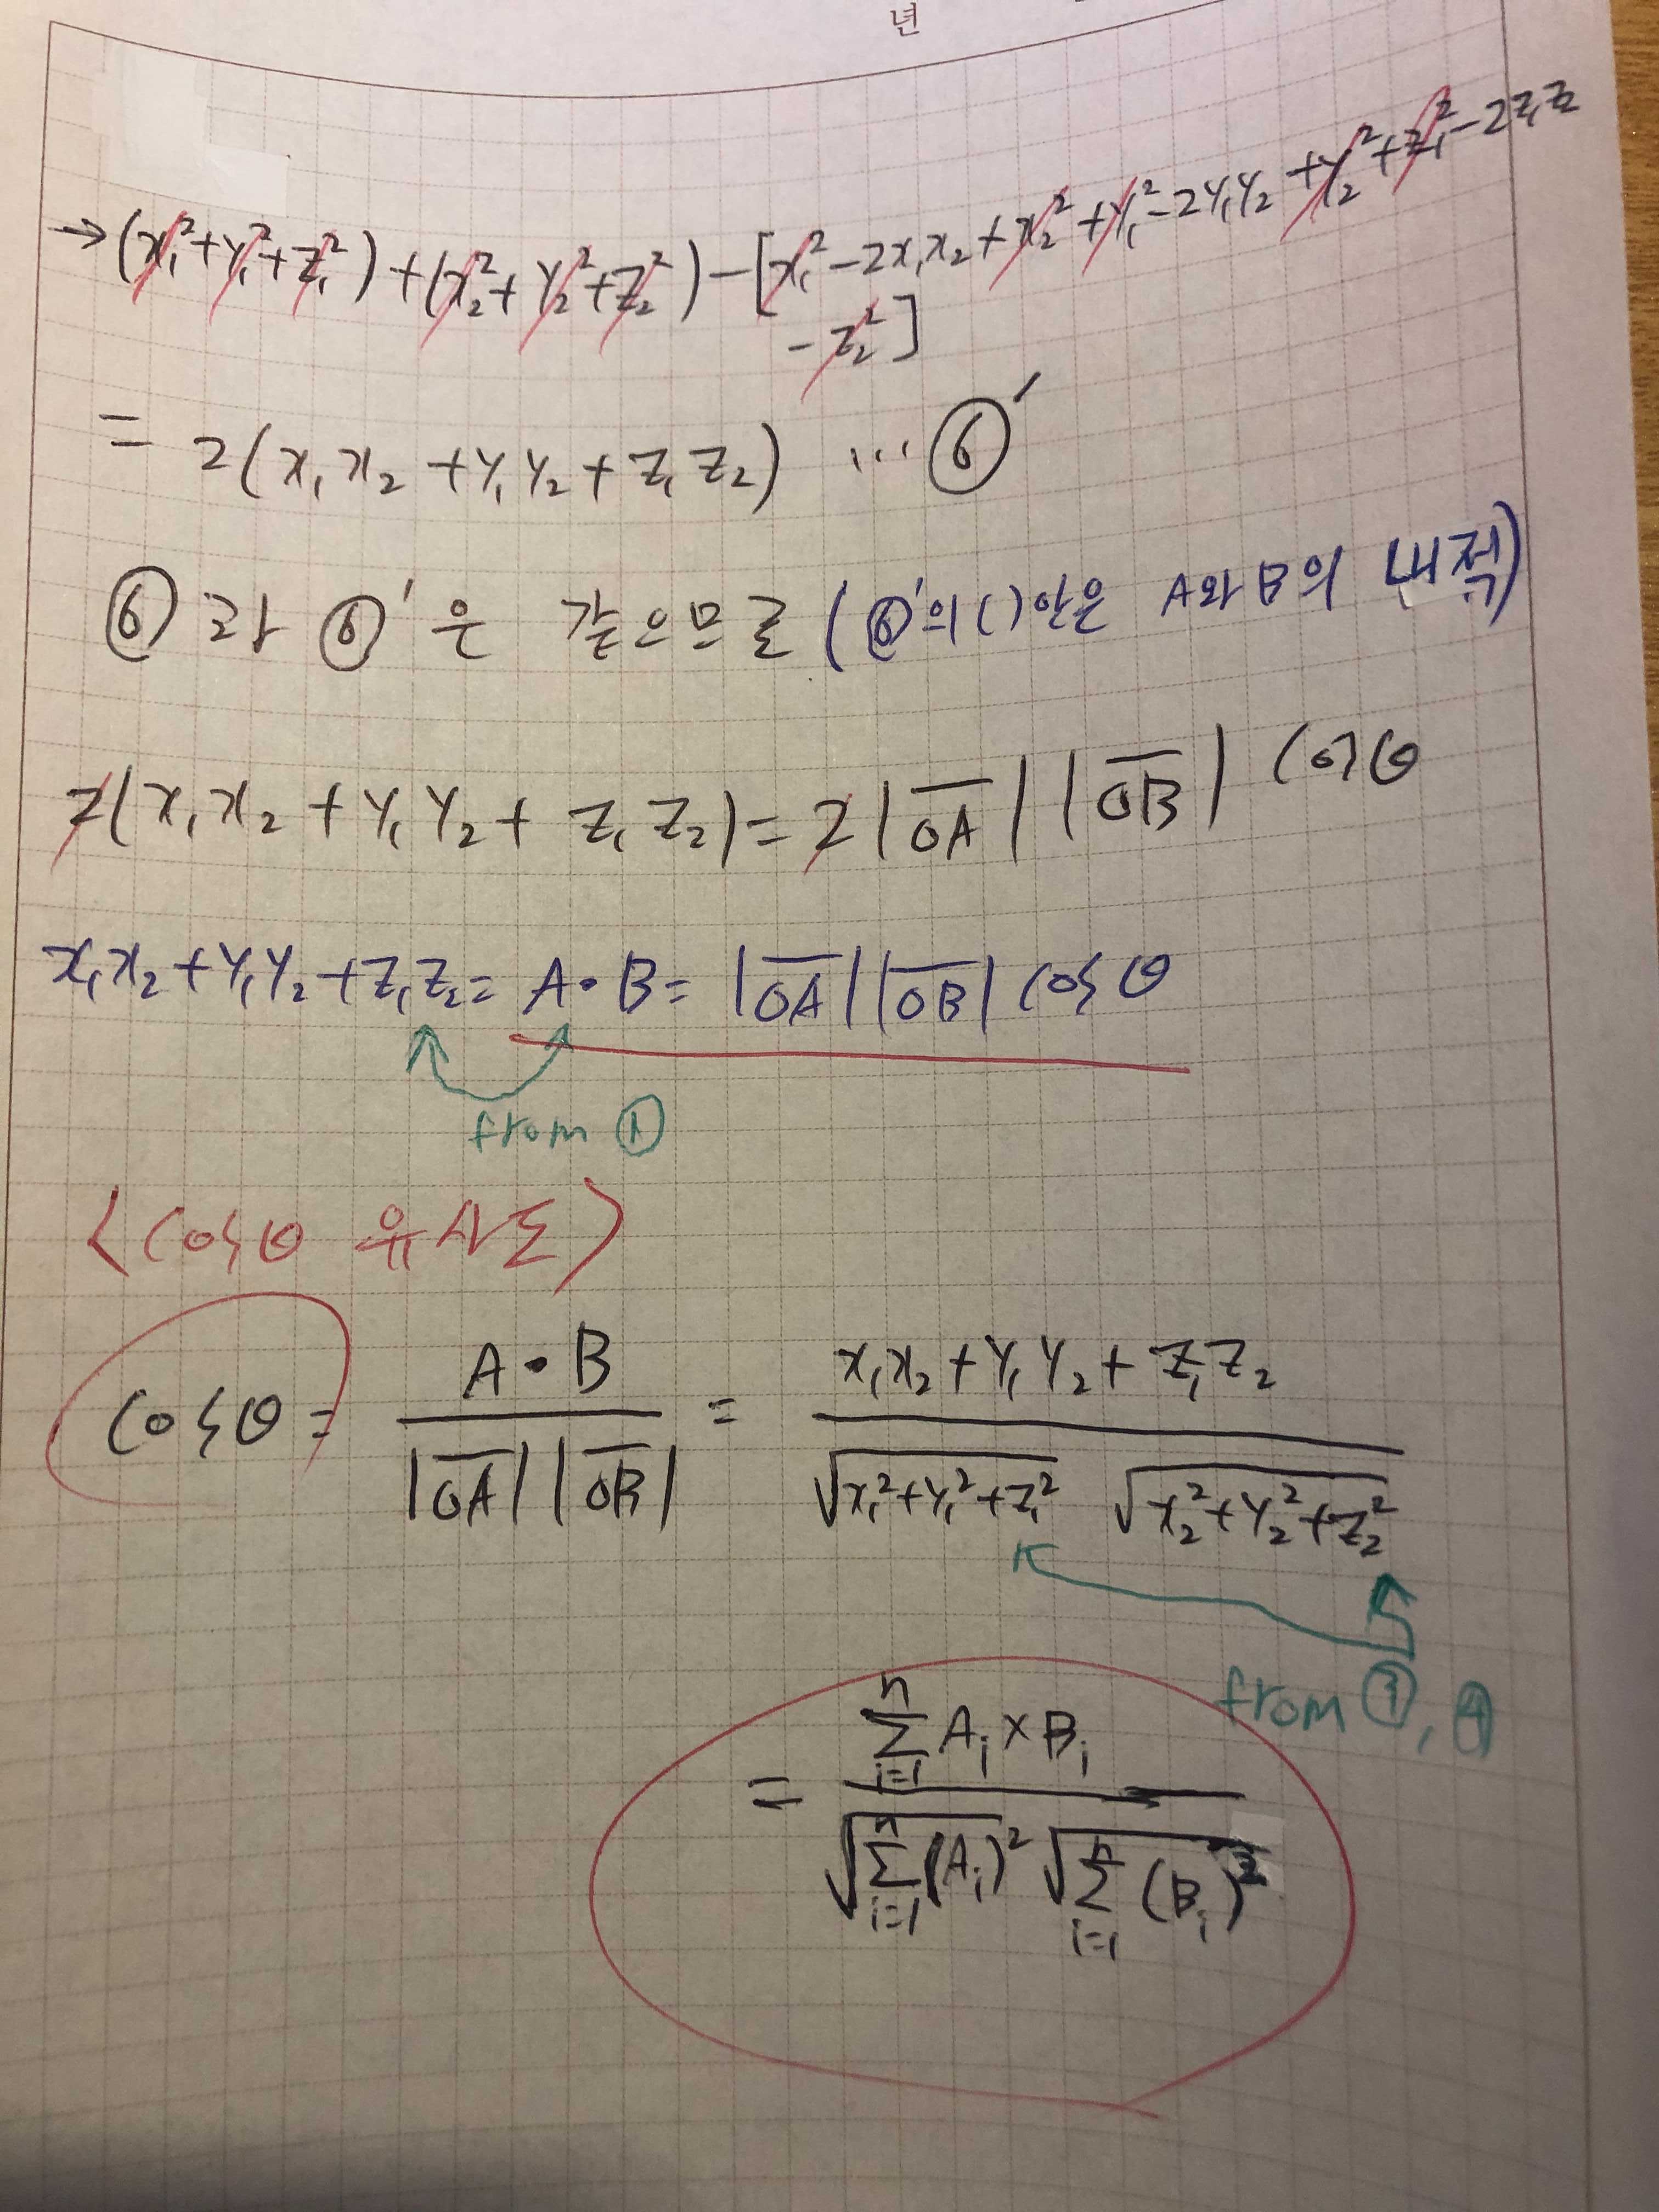 년
→ (x₁²+y₁²+z₁²)+(x₂²+y₂²+z₂²)-[x₁²-2x₁x₂+x₂²+y₁²-2y₁y₂+y₂²+z₁²-2z₁z₂
-z₂²]
= 2(x₁x₂+y₁y₂+z₁z₂) ... ⑥′
⑥과 ⑥′은 같으므로 (⑥′의 ( ) 안은 A와 B의 내적)
2(x₁x₂+y₁y₂+z₁z₂)=2|O̅A̅||O̅B̅| cosθ
x₁x₂+y₁y₂+z₁z₂= A·B= |O̅A̅||O̅B̅| cosθ
from ①
<cosθ 유사도>
cosθ = A·B / |O̅A̅||O̅B̅| = x₁x₂+y₁y₂+z₁z₂ / √(x₁²+y₁²+z₁²) √(x₂²+y₂²+z₂²)
from ③, ④
= Σᵢ₌₁ⁿ Aᵢ×Bᵢ / √Σᵢ₌₁ⁿ(Aᵢ)² √Σᵢ₌₁ⁿ(Bᵢ)²